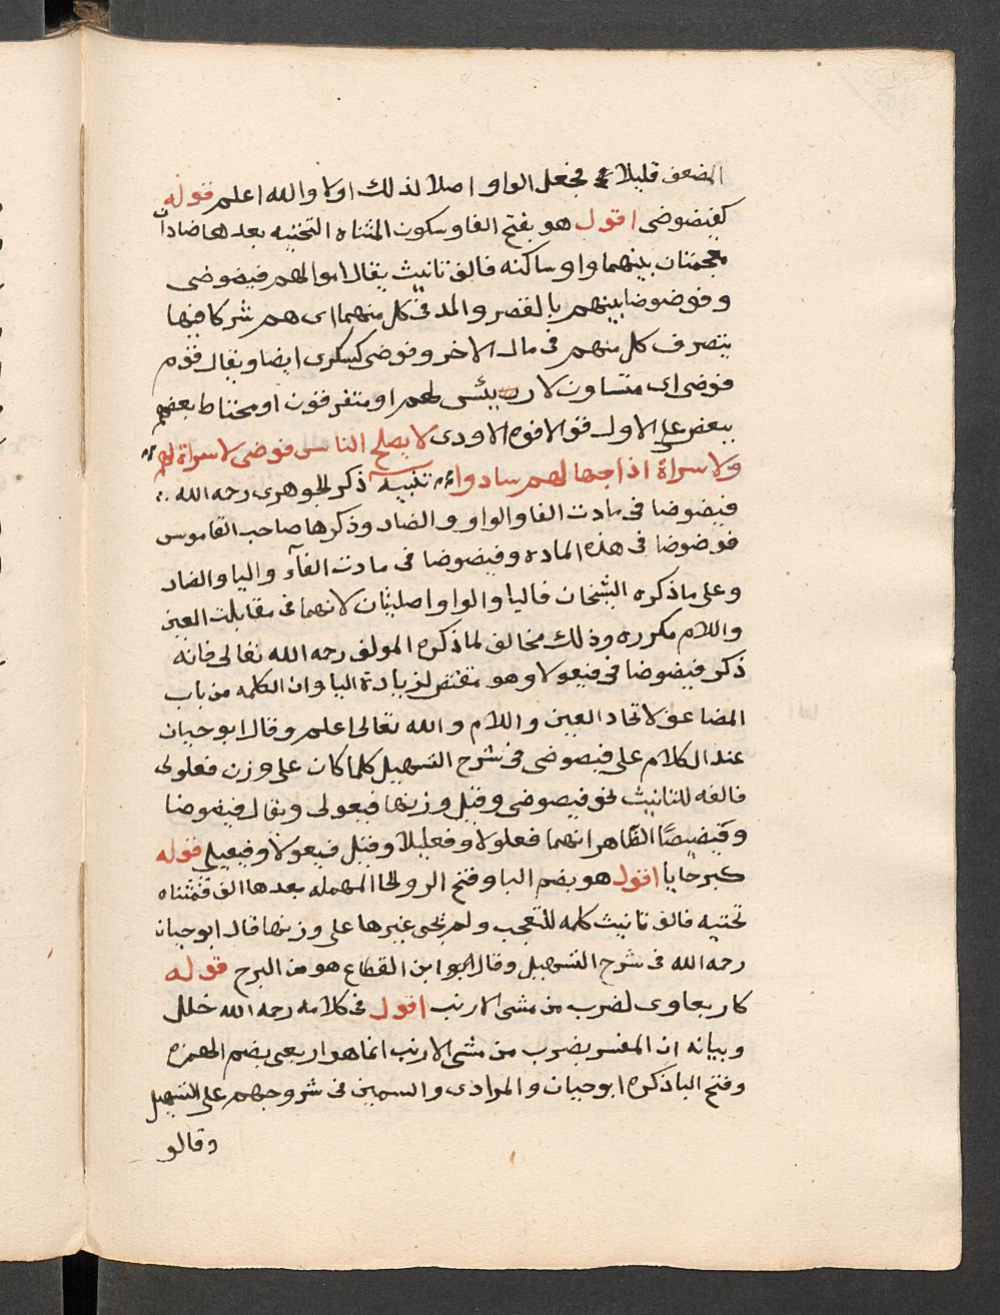 المضعف قليلا فجعل الواو اصلا لذلك اولا والله اعلم قوله
كفيضوضى اقول هو بفتح الفا وسكون المثناه التحتيه بعدها ضادان
معجمتان بينهما واو ساكنه فالف تانيث يقال اموالهم فيضوضى
وفوضوضا بينهم بالقصر والمد فى كل منهما اى هم شركا فيها
يتصرف كل منهم فى مال الاخر وفوضى كسكرى ايضا ويقال قوم
فوضى اى متساون لا رئيس لهم او متفرقون او مختلط بعضهم
ببعض على الاول قو الافوه الاودى لا يصلح الناس فوضى لا سراة لهم
ولا سراة اذا جهالهم سادوا تنبيه ذكر الجوهرى رحمه الله
فيضوضا فى مادت الفا والواو والضاد وذكرها صاحب القاموس
فوضوضا فى هذه الماده وفيضوضا فى مادت الفآء واليا والضاد
وعلى ما ذكره الشيخان فاليا والواو اصليتان لانهما فى مقابلت العين
واللام مكرره وذلك مخالف لما ذكره المولف رحمه الله تعالى فانه
ذكر فيضوضا فى فيعولا وهو مقتض لزيادة اليا وان الكلمه من باب
المضاعف لاتحاد العين واللام والله تعالى اعلم وقال ابو حيان
عند الكلام على فيضوضى فى شرح التسهيل كلما كان على وزن فعلولى
فالفه للتانيث نحو فيضوضى وقيل وزنها فيعولى ويقال فيضوضا
وفيضيضًا الظاهر انهما فعلولا وفعليلا وقيل فيعولا وفيعيلى قوله
كبرحايا اقول هو بضم البا وفتح الر والحا المهمله بعدها الف فمثناه
تحتيه فالف تانيث كلمه للتعجب ولم يجى غيرها على وزنها قال ابو حيان
رحمه الله فى شرح التسهيل وقال ابو ابن القطاع هو من البرح قوله
كاربعاوى لضرب من مشى الارنب اقول فى كلامه رحمه الله خلل
وبيانه ان المفسر بضرب من مشى الارنب انما هو اربعى بضم الهمزه
وفتح البا ذكره ابو حيان والمرادى والسمين فى شروحهم على التسهيل
وقالو